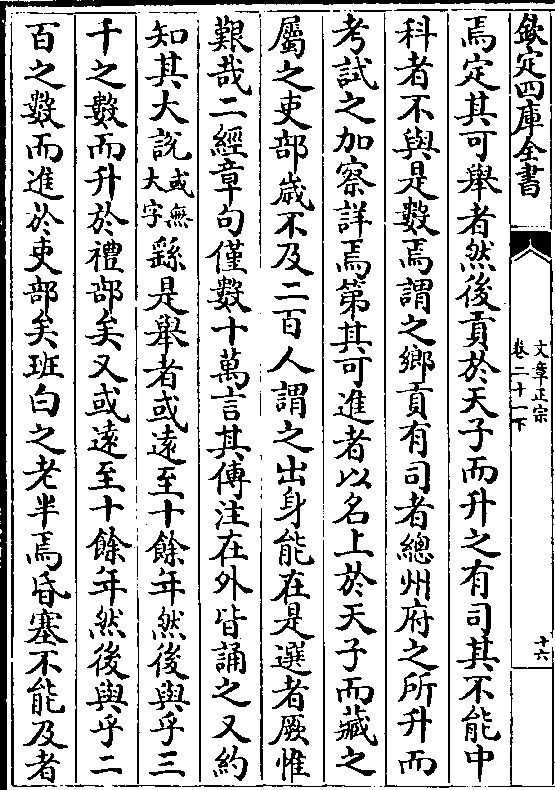 欽定四庫全書
文章正宗
卷二十一下
十六
焉定其可舉者然後貢於天子而升之有司其不能中
科者不與是數焉謂之鄉貢有司者總州府之所升而
考試之加察詳焉第其可進者以名上於天子而藏之
屬之吏部歲不及二百人謂之出身能在是選者厥惟
艱哉二經章句僅數十萬言其傳注在外皆誦之又約
知其大説或無大字繇是舉者或遠至十餘年然後與乎三
千之數而升於禮部矣又或遠至十餘年然後與乎二
百之數而進於吏部矣班白之老半焉昏塞不能及者